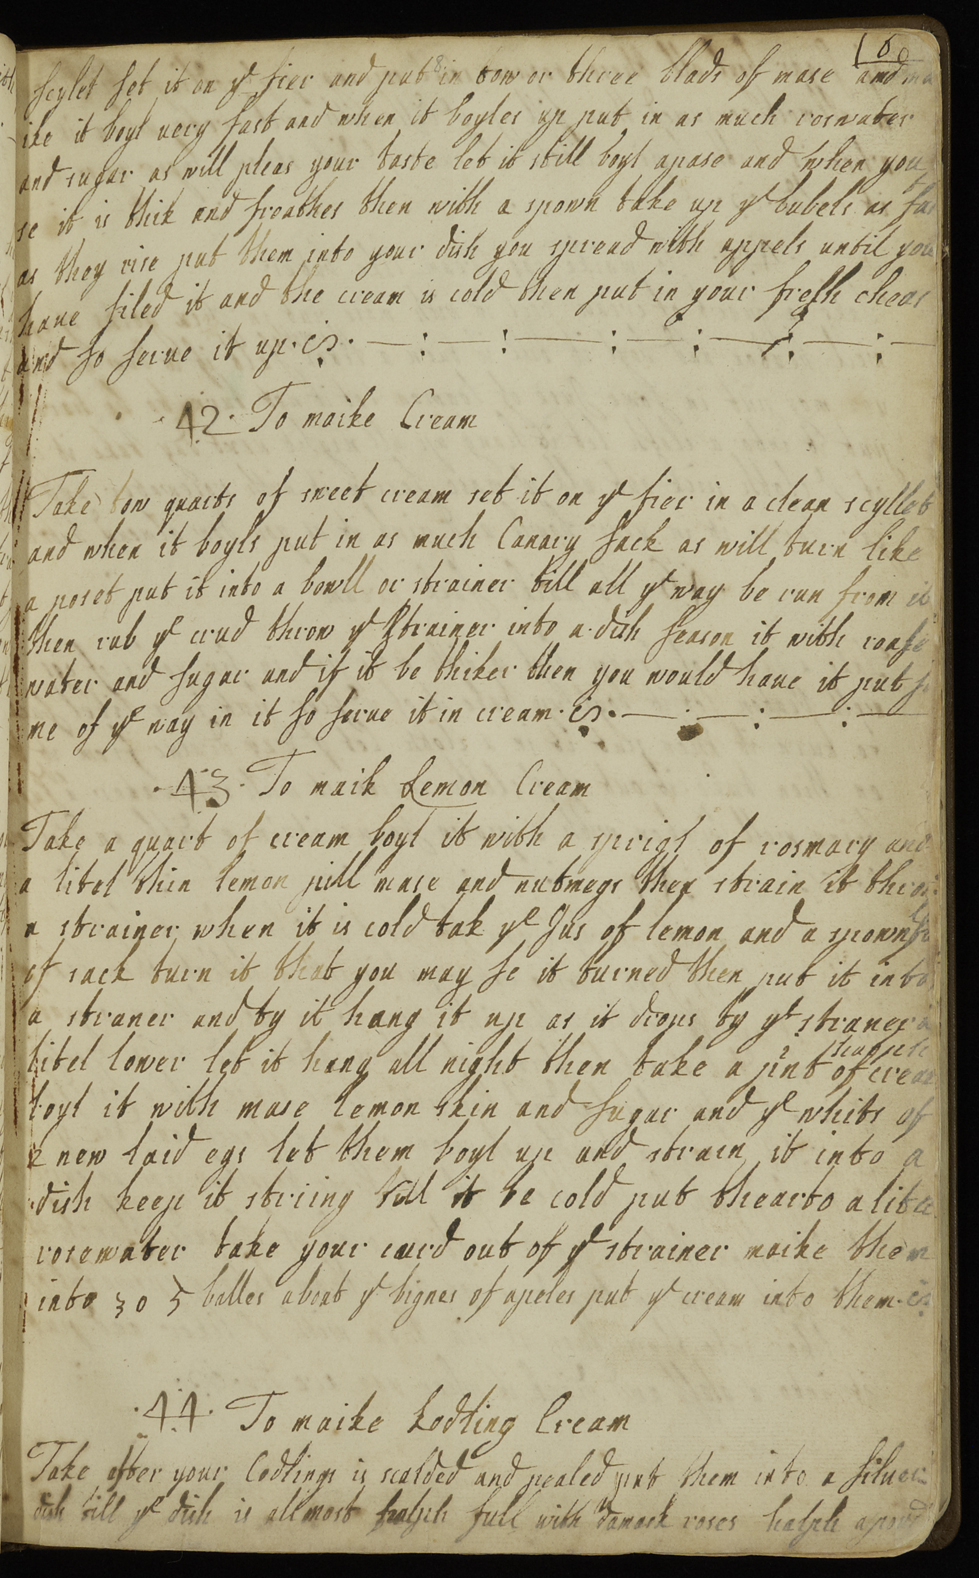 scylet set it on ye fier and put in tow or three blads of mase and ma
ike it boyl uery fast and when it boyles up put in as much roswater
and sugar as will pleas your taste let it still boyl apase and when you
se it is thik and freathes then with a spown take up ye bubels as fas
as they rise put them into your dish you spread with appels until you
haue filed it and the cream is cold then put in your fresh chees
and so serue it up
42 To maike Cream
Take tow quarts of sweet cream set it on ye fier in a clean scyllet
and when it boyls put in as much Canary sack as will turn like
a poset put it into a bowll or strainer till all ye way be run from it
then rub ye crud throw ye strainer into a dish season it with rouse
water and sugar and if it be thiker then you would haue it put so
me of ye way in it so serue it in cream
43 To maik Lemon Cream
Take a quart of cream boyl it with a sprigt of rosmary and
a litel thin lemon pill mase and nutmegs then strain it throu
a strainer when it is cold tak ye Jus of lemon and a spownfu
of sack turn it that you may se it turned then put it into
a straner and by it hang it up as it drops by ye straner a
litel lower let it hang all night then take a pint & halph of cream
boyl it with mase lemon skin and sugar and ye whits of
2 new laid egs let them boyl up and strain it into a
dish keep it striing till it be cold put thearto a litel
rosewater take your curd out of ye strainer maike them
into 3 o 5 balles about ye bignes of apeles put ye cream into them
44 To maike Kodling Cream
Take after your Codlings is scalded and pealed put them into a siluer
dish till ye dish is allmost halph full with damask roses halph a pound